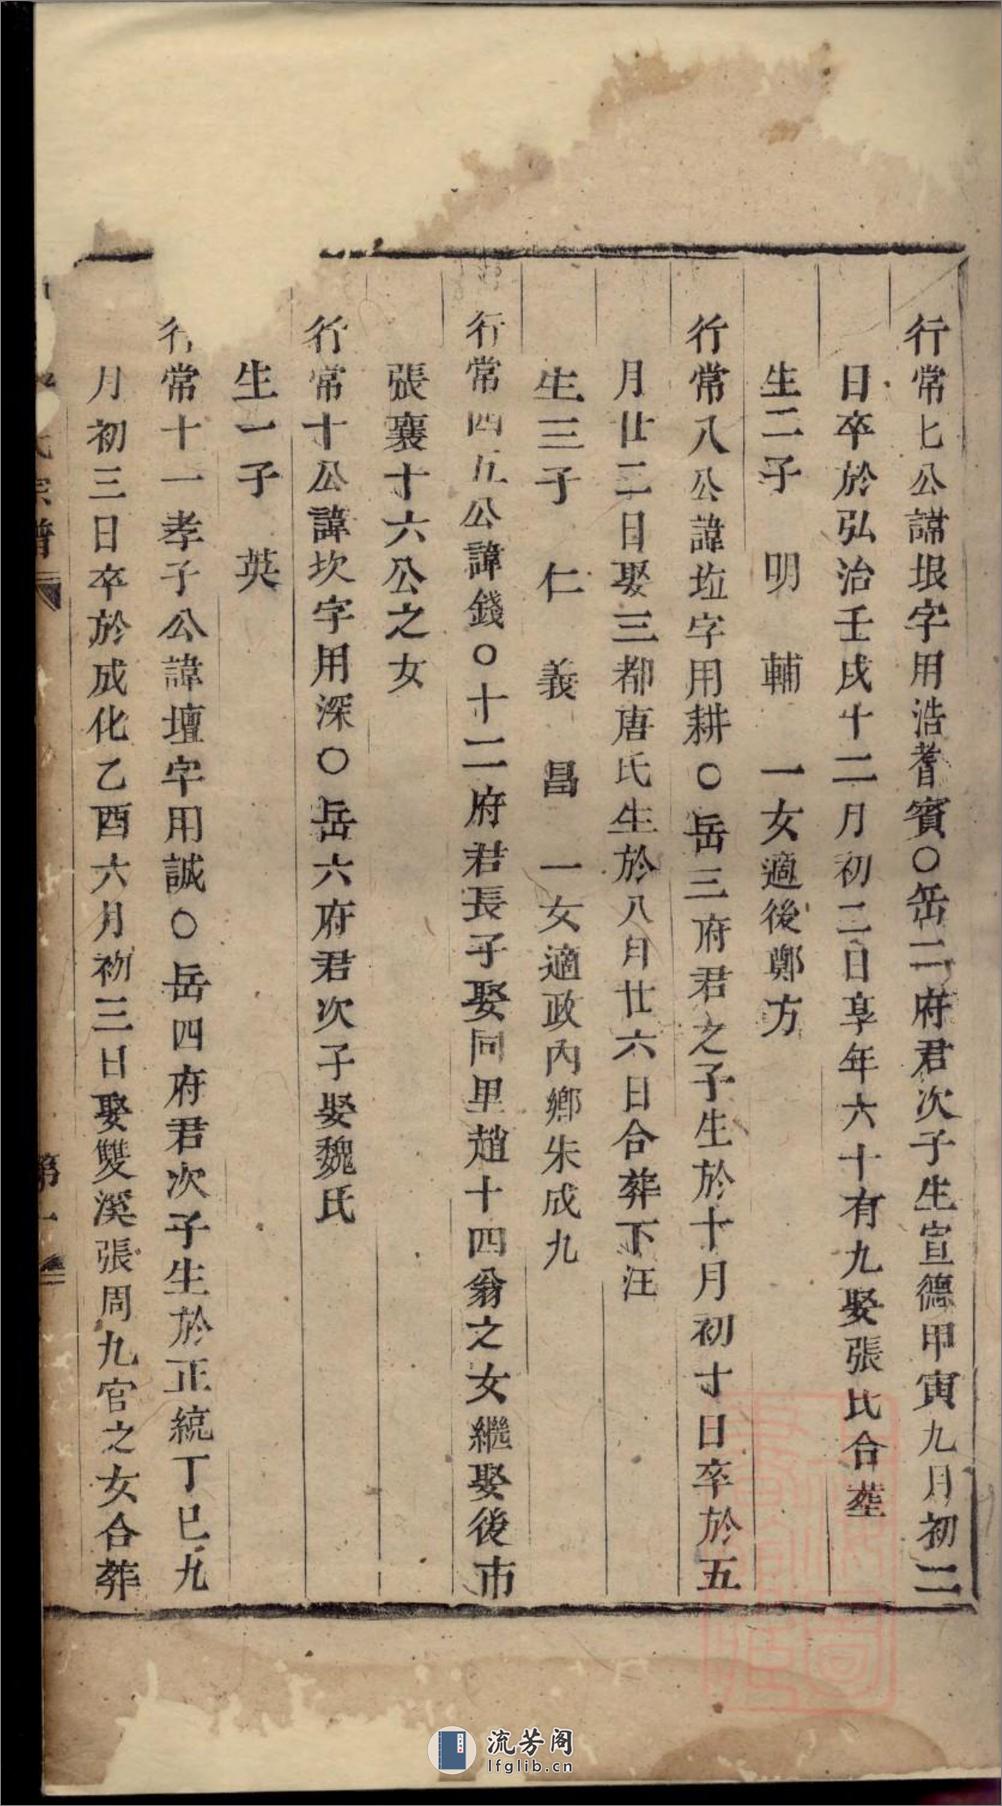 行常七公諱垠字用浩耆賓○岳二府君次子生宣德甲寅九月初二
日卒於弘治壬戌十二月初二日享年六十有九娶張氏合塟
生二子 明 輔 一女適後鄭方
行常八公諱垃字用耕○岳三府君之子生於十月初十日卒於五
月廿二日娶三都唐氏生於八月廿六日合葬下汪
生三子 仁 義 昌 一女適政內鄉朱成九
行常四五公諱錢○十二府君長子娶同里趙十四翁之女繼娶後市
張襄十六公之女
行常十公諱坎字用深○岳六府君次子娶魏氏
生一子 英
行常十一孝子公諱壇字用誠○岳四府君次子生於正統丁巳九
月初三日卒於成化乙酉六月初三日娶雙溪張周九官之女合葬
宗譜
第一
流芳阁
lfglib.cn